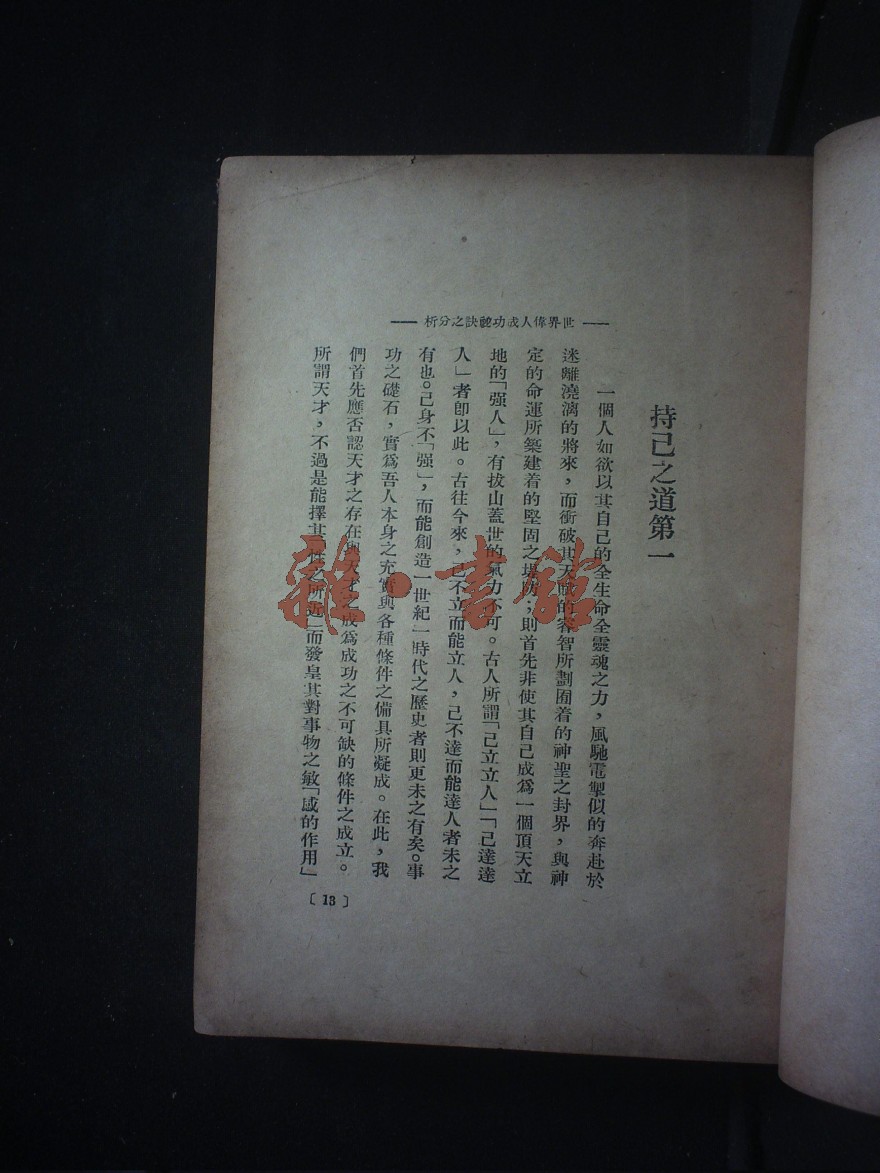 世界偉人成功祕訣之分析
持己之道第一
一個人如欲以其自己的全生命全靈魂之力，風馳電掣似的奔赴於
迷離澆漓的將來，而衝破其天賦的容智所劃囿着的神聖之封界，與神
定的命運所築建着的堅固之堤防；則首先非使其自己成爲一個頂天立
地的「强人」，有拔山蓋世的氣力不可。古人所謂「己立立人」「己達達
人」者卽以此。古往今來，己不立而能立人，己不達而能達人者未之
有也。己身不「强」，而能創造一世紀一時代之歷史者則更未之有矣。事
功之礎石，實爲吾人本身之充實與各種條件之備具所凝成。在此，我
們首先應否認天才之存在與天才之成爲成功之不可缺的條件之成立。
所謂天才，不過是能擇其「性之所近」而發皇其對事物之敏「感的作用」
〔13〕
雜·書館